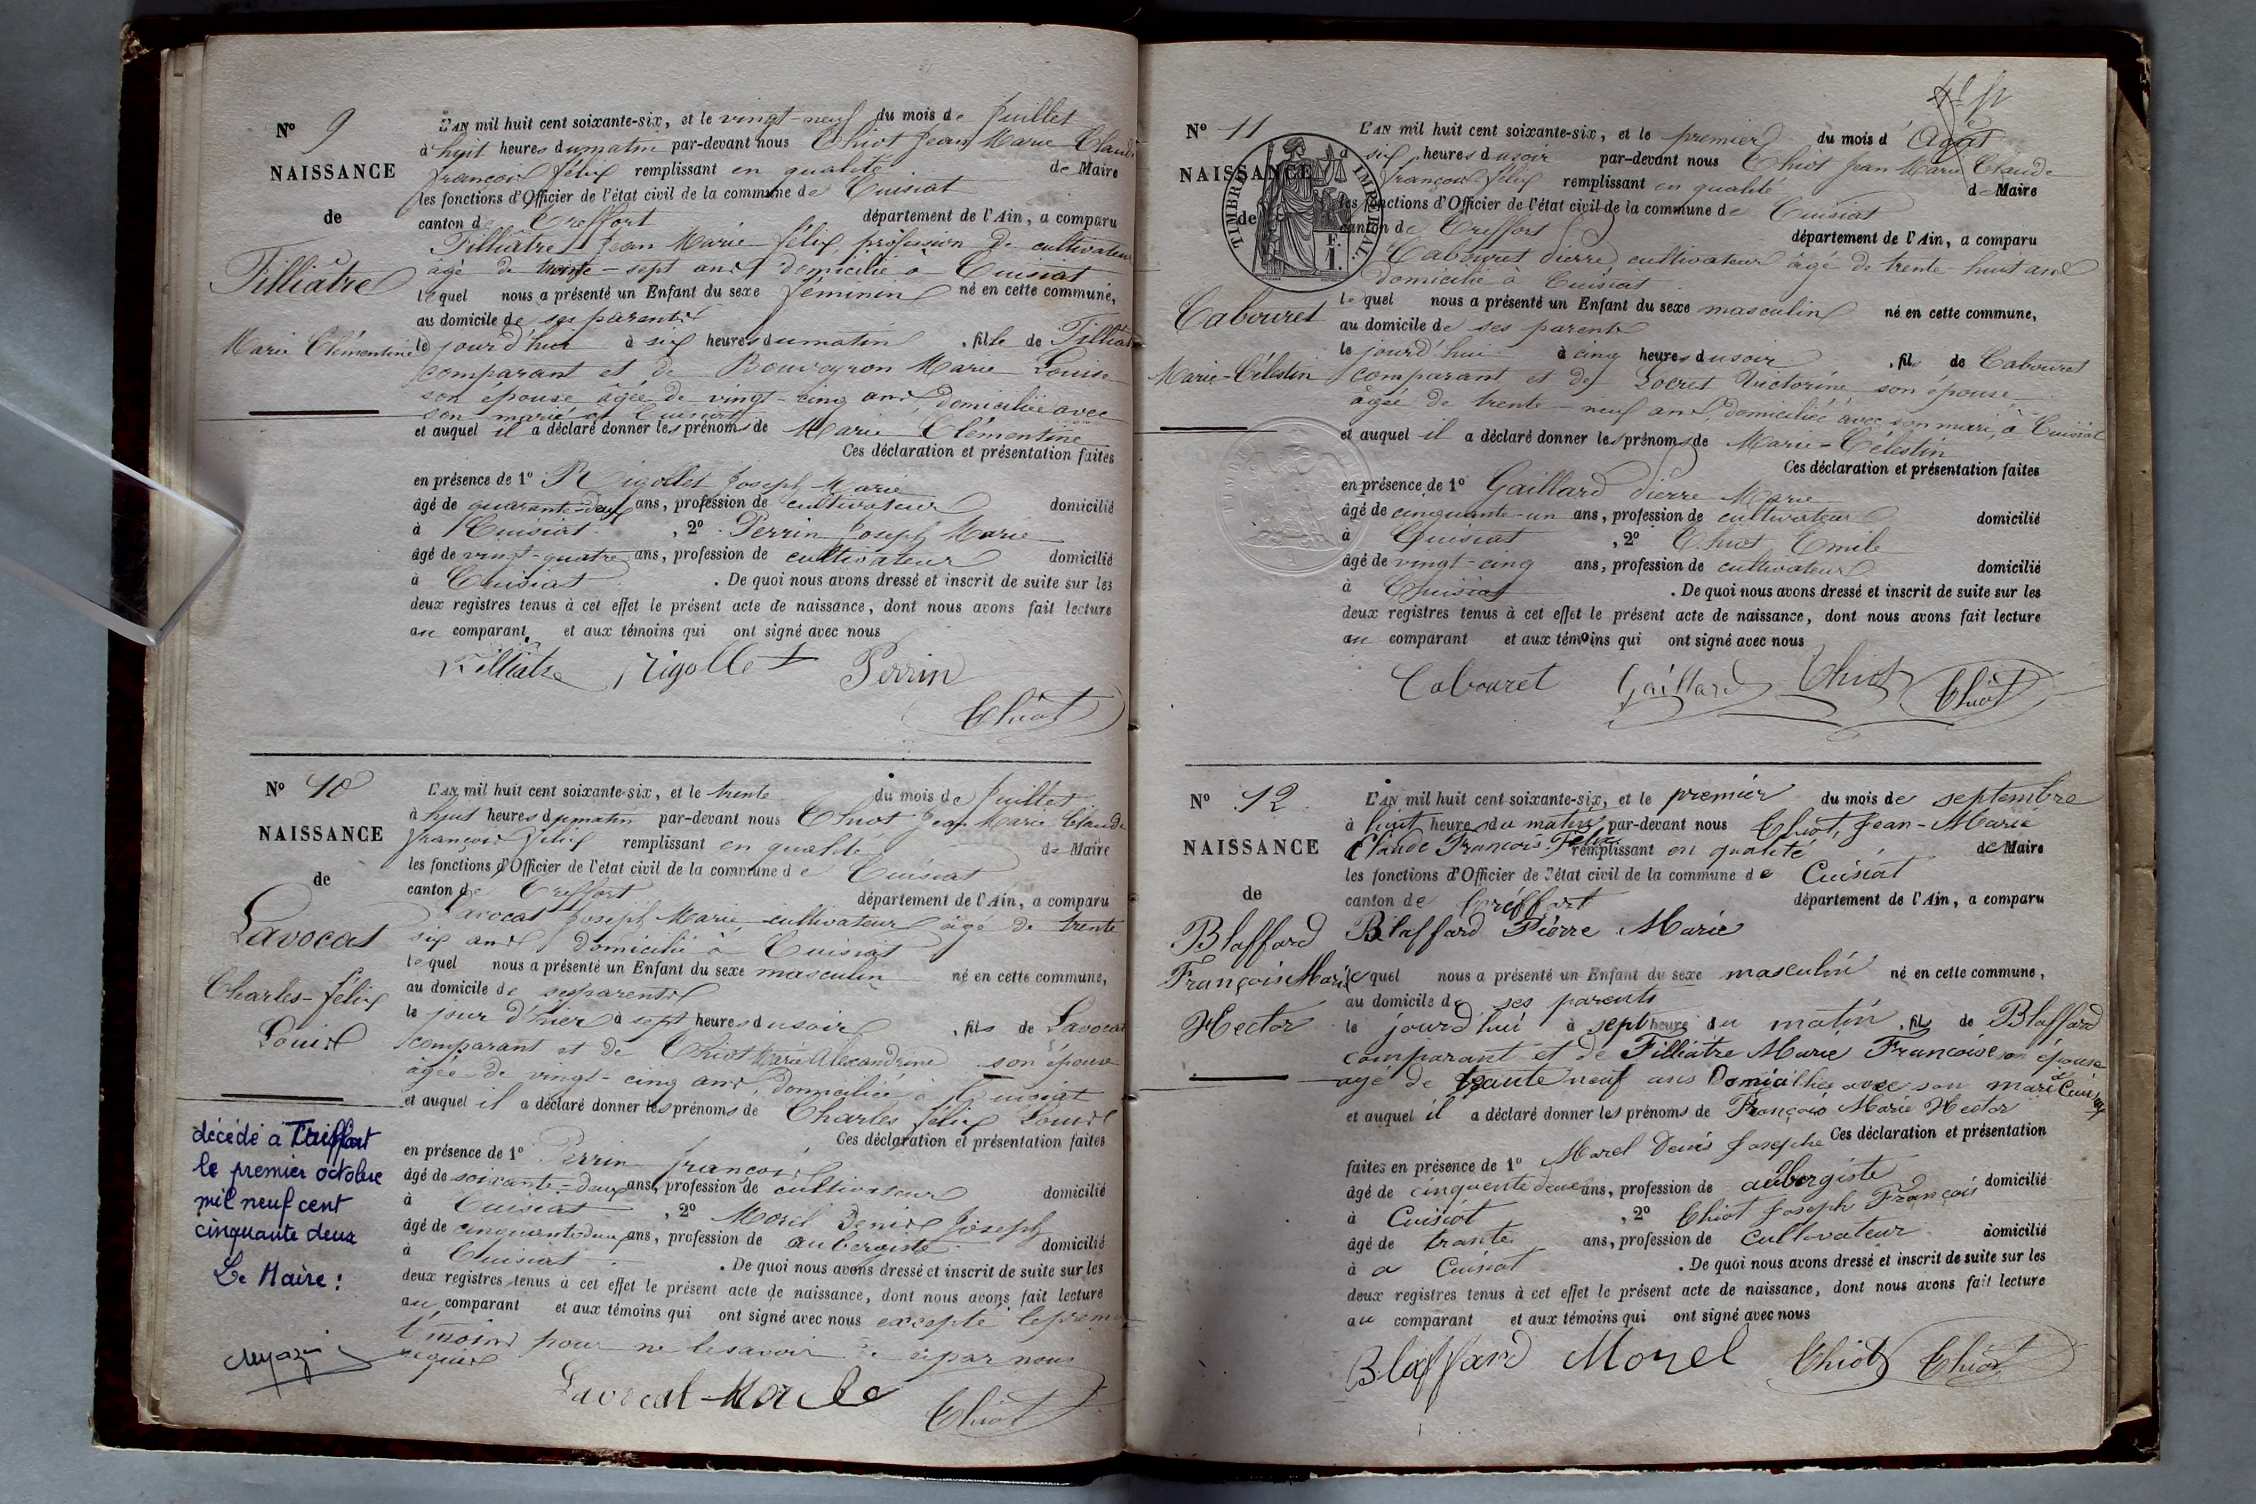 N° 9
NAISSANCE
de
Filliâtre
Marie Clémentine
L'AN mil huit cent soixante-six, et le vingt-neuf du mois de Juillet
à huit heures du matin par-devant nous Chiot Jean Marie Claude
françois félix remplissant en qualité de Maire
les fonctions d'Officier de l'état civil de la commune de Cuisiat
canton de Treffort département de l'Ain, a comparu
Filliâtre Jean Marie félix, profession de cultivateur
âgé de trente-sept ans domicilié à Cuisiat
lequel nous a présenté un Enfant du sexe féminin né en cette commune,
au domicile de ses parents
le jourd'hui à six heures du matin, fille de Filliâtre
comparant et de Rouveyron Marie Louise
son épouse âgée de vingt-cinq ans, domiciliée avec
son marié à Cuisiat
et auquel il a déclaré donner les prénoms de Marie Clémentine
Ces déclaration et présentation faites
en présence de 1° Rigollet Joseph Marie
âgé de quarante-deux ans, profession de cultivateur domicilié
à Cuisiat, 2° Perrin Joseph Marie
âgé de vingt-quatre ans, profession de cultivateur domicilié
à Cuisiat. De quoi nous avons dressé et inscrit de suite sur les
deux registres tenus à cet effet le présent acte de naissance, dont nous avons fait lecture
au comparant et aux témoins qui ont signé avec nous
Filliatre Rigollet Perrin
Chiot
N° 10
NAISSANCE
de
Lavocat
Charles-félix
Louis
L'AN mil huit cent soixante-six, et le trente du mois de Juillet
à huit heures du matin par-devant nous Chiot Jean Marie Claude
françois félix remplissant en qualité de Maire
les fonctions d'Officier de l'état civil de la commune de Cuisiat
canton de Treffort département de l'Ain, a comparu
Lavocat Joseph Marie, cultivateur âgé de trente
six ans domicilié à Cuisiat
lequel nous a présenté un Enfant du sexe masculin né en cette commune,
au domicile de ses parents
le jour d'hier à sept heures du soir, fils de Lavocat
comparant et de Chiot Marie Alexandrine son épouse
âgée de vingt-cinq ans, domiciliée à Cuisiat
et auquel il a déclaré donner les prénoms de Charles félix Louis
Ces déclaration et présentation faites
en présence de 1° Perrin françois
âgé de soixante-deux ans, profession de cultivateur domicilié
à Cuisiat, 2° Morel Denis Joseph
âgé de cinquante deux ans, profession de aubergiste domicilié
à Cuisiat. De quoi nous avons dressé et inscrit de suite sur les
deux registres tenus à cet effet le présent acte de naissance, dont nous avons fait lecture
au comparant et aux témoins qui ont signé avec nous excepté le premier
témoin pour ne le savoir de ce par nous
requis
Lavocat Morel
Chiot
décédé à Treffort
le premier octobre
mil neuf cent
cinquante deux
Le Maire :
N° 11
NAISSANCE
de
Cabouret
Marie-Célestin
TIMBRE IMPERIAL
F.
1.
L'AN mil huit cent soixante-six, et le premier du mois d'Août
à six heures du soir par-devant nous Chiot Jean Marie Claude
françois félix remplissant en qualité de Maire
les fonctions d'Officier de l'état civil de la commune de Cuisiat
canton de Treffort département de l'Ain, a comparu
Cabouret Pierre, cultivateur âgé de trente-huit ans
domicilié à Cuisiat
lequel nous a présenté un Enfant du sexe masculin né en cette commune,
au domicile de ses parents
le jourd'hui à cinq heures du soir, fils de Cabouret
comparant et de Locret Victorine son épouse
âgée de trente-neuf ans, domiciliée avec son mari, à Cuisiat
et auquel il a déclaré donner les prénoms de Marie-Célestin
Ces déclaration et présentation faites
en présence de 1° Gaillard Pierre Marie
âgé de cinquante-un ans, profession de cultivateur domicilié
à Cuisiat, 2° Chiot Emile
âgé de vingt-cinq ans, profession de cultivateur domicilié
à Cuisiat. De quoi nous avons dressé et inscrit de suite sur les
deux registres tenus à cet effet le présent acte de naissance, dont nous avons fait lecture
au comparant et aux témoins qui ont signé avec nous
Cabouret Gaillard Chiot Chiot
N° 12
NAISSANCE
de
Blaffard
François Marie
Hector
L'AN mil huit cent soixante-six, et le premier du mois de septembre
à huit heures du matin par-devant nous Chiot, Jean-Marie
Claude François Félix remplissant en qualité de Maire
les fonctions d'Officier de l'état civil de la commune de Cuisiat
canton de Tréffort département de l'Ain, a comparu
Blaffard Pierre Marie
lequel nous a présenté un Enfant du sexe masculin né en cette commune,
au domicile de ses parents
le jourd'hui à sept heure du matin, fils de Blaffard
comparant et de Filliatre Marie Francoise son épouse
agé de trante neuf ans Domicilies avec son mari à Cuisiat
et auquel il a déclaré donner les prénoms de François Marie Hector
Ces déclaration et présentation
faites en présence de 1° Morel Denis Josephe
âgé de cinquente deux ans, profession de aubergiste domicilié
à Cuisiat, 2° Chiot Joseph François
âgé de trante ans, profession de cultivateur domicilié
à a Cuisiat. De quoi nous avons dressé et inscrit de suite sur les
deux registres tenus à cet effet le présent acte de naissance, dont nous avons fait lecture
au comparant et aux témoins qui ont signé avec nous
Blaffard Morel Chiot Chiot